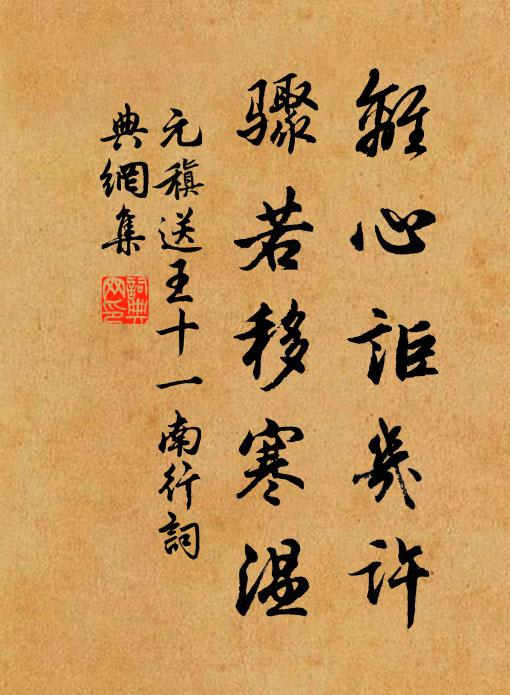 離心詎幾許
驟若移寒溫
元稹送王十一南行詞
典網集
詞典網印